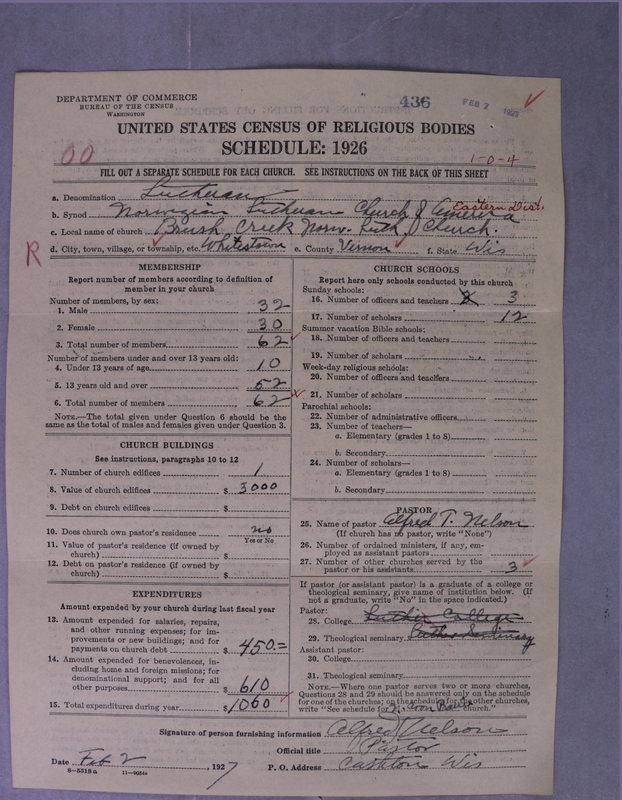 DEPARTMENT OF COMMERCE
BUREAU OF THE CENSUS
WASHINGTON
436
FEB 2 1927
UNITED STATES CENSUS OF RELIGIOUS BODIES
SCHEDULE: 1926
00
1-0-4
FILL OUT A SEPARATE SCHEDULE FOR EACH CHURCH. SEE INSTRUCTIONS ON THE BACK OF THIS SHEET
a. Denomination Lutheran
b. Synod Norwegian Lutheran Church of America Eastern Dist.
c. Local name of church Brush Creek Norw. Luth. Church.
R
d. City, town, village, or township, etc. Whitestown e. County Vernon f. State Wis
MEMBERSHIP
Report number of members according to definition of
member in your church
Number of members, by sex:
1. Male 32
2. Female 30
3. Total number of members 62
Number of members under and over 13 years old:
4. Under 13 years of age 10
5. 13 years old and over 52
6. Total number of members 62
NOTE.—The total given under Question 6 should be the
same as the total of males and females given under Question 3.
CHURCH BUILDINGS
See instructions, paragraphs 10 to 12
7. Number of church edifices 1
8. Value of church edifices $ 3000
9. Debt on church edifices $
10. Does church own pastor's residence no
Yes or No
11. Value of pastor's residence (if owned by
church) $
12. Debt on pastor's residence (if owned by
church) $
EXPENDITURES
Amount expended by your church during last fiscal year
13. Amount expended for salaries, repairs,
and other running expenses; for im-
provements or new buildings; and for
payments on church debt $ 450.=
14. Amount expended for benevolences, in-
cluding home and foreign missions; for
denominational support; and for all
other purposes $ 610
15. Total expenditures during year $ 1060
CHURCH SCHOOLS
Report here only schools conducted by this church
Sunday schools:
16. Number of officers and teachers 3
17. Number of scholars 12
Summer vacation Bible schools:
18. Number of officers and teachers
19. Number of scholars
Week-day religious schools:
20. Number of officers and teachers
21. Number of scholars
Parochial schools:
22. Number of administrative officers
23. Number of teachers—
a. Elementary (grades 1 to 8)
b. Secondary
24. Number of scholars—
a. Elementary (grades 1 to 8)
b. Secondary
PASTOR
25. Name of pastor Alfred T. Nelson
(If church has no pastor, write "None")
26. Number of ordained ministers, if any, em-
ployed as assistant pastors
27. Number of other churches served by the
pastor or his assistants 3
If pastor (or assistant pastor) is a graduate of a college or
theological seminary, give name of institution below. (If
not a graduate, write "No" in the space indicated.)
Pastor:
28. College Luther College
29. Theological seminary Luther Seminary
Assistant pastor:
30. College
31. Theological seminary
NOTE.—Where one pastor serves two or more churches,
Questions 28 and 29 should be answered only on the schedule
for one of the churches; on the schedule for the other churches,
write "See schedule for church."
Signature of person furnishing information Alfred Nelson
Official title Pastor
Date Feb 2, 1927 P. O. Address Cashton Wis
8—5318a 11—9054a